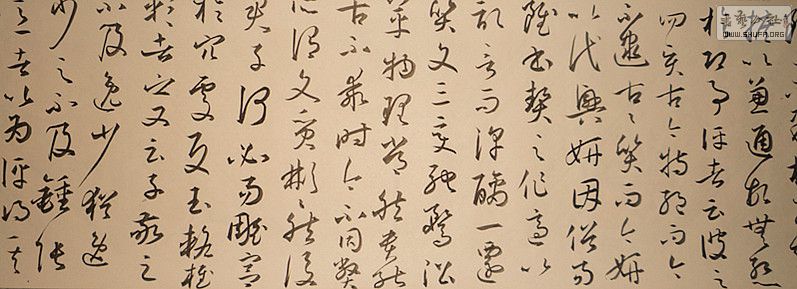 以兼通故無慚
於即事評者云彼之
四賢古今特絕而今
不逮古〻質而今妍
以代興妍因俗易
雖書契之作適以
記言而淳醨一遷
質文三變馳騖沿
革物理常然貴能
古不乖時今不同弊
所謂文質彬〻然後
君子何必易雕宮
於穴處反玉輅於椎
輪者乎又云子敬之
不及逸少猶逸
少之不及鍾張
意者以為評得其
書法公社
WWW.SHUFA.ORG